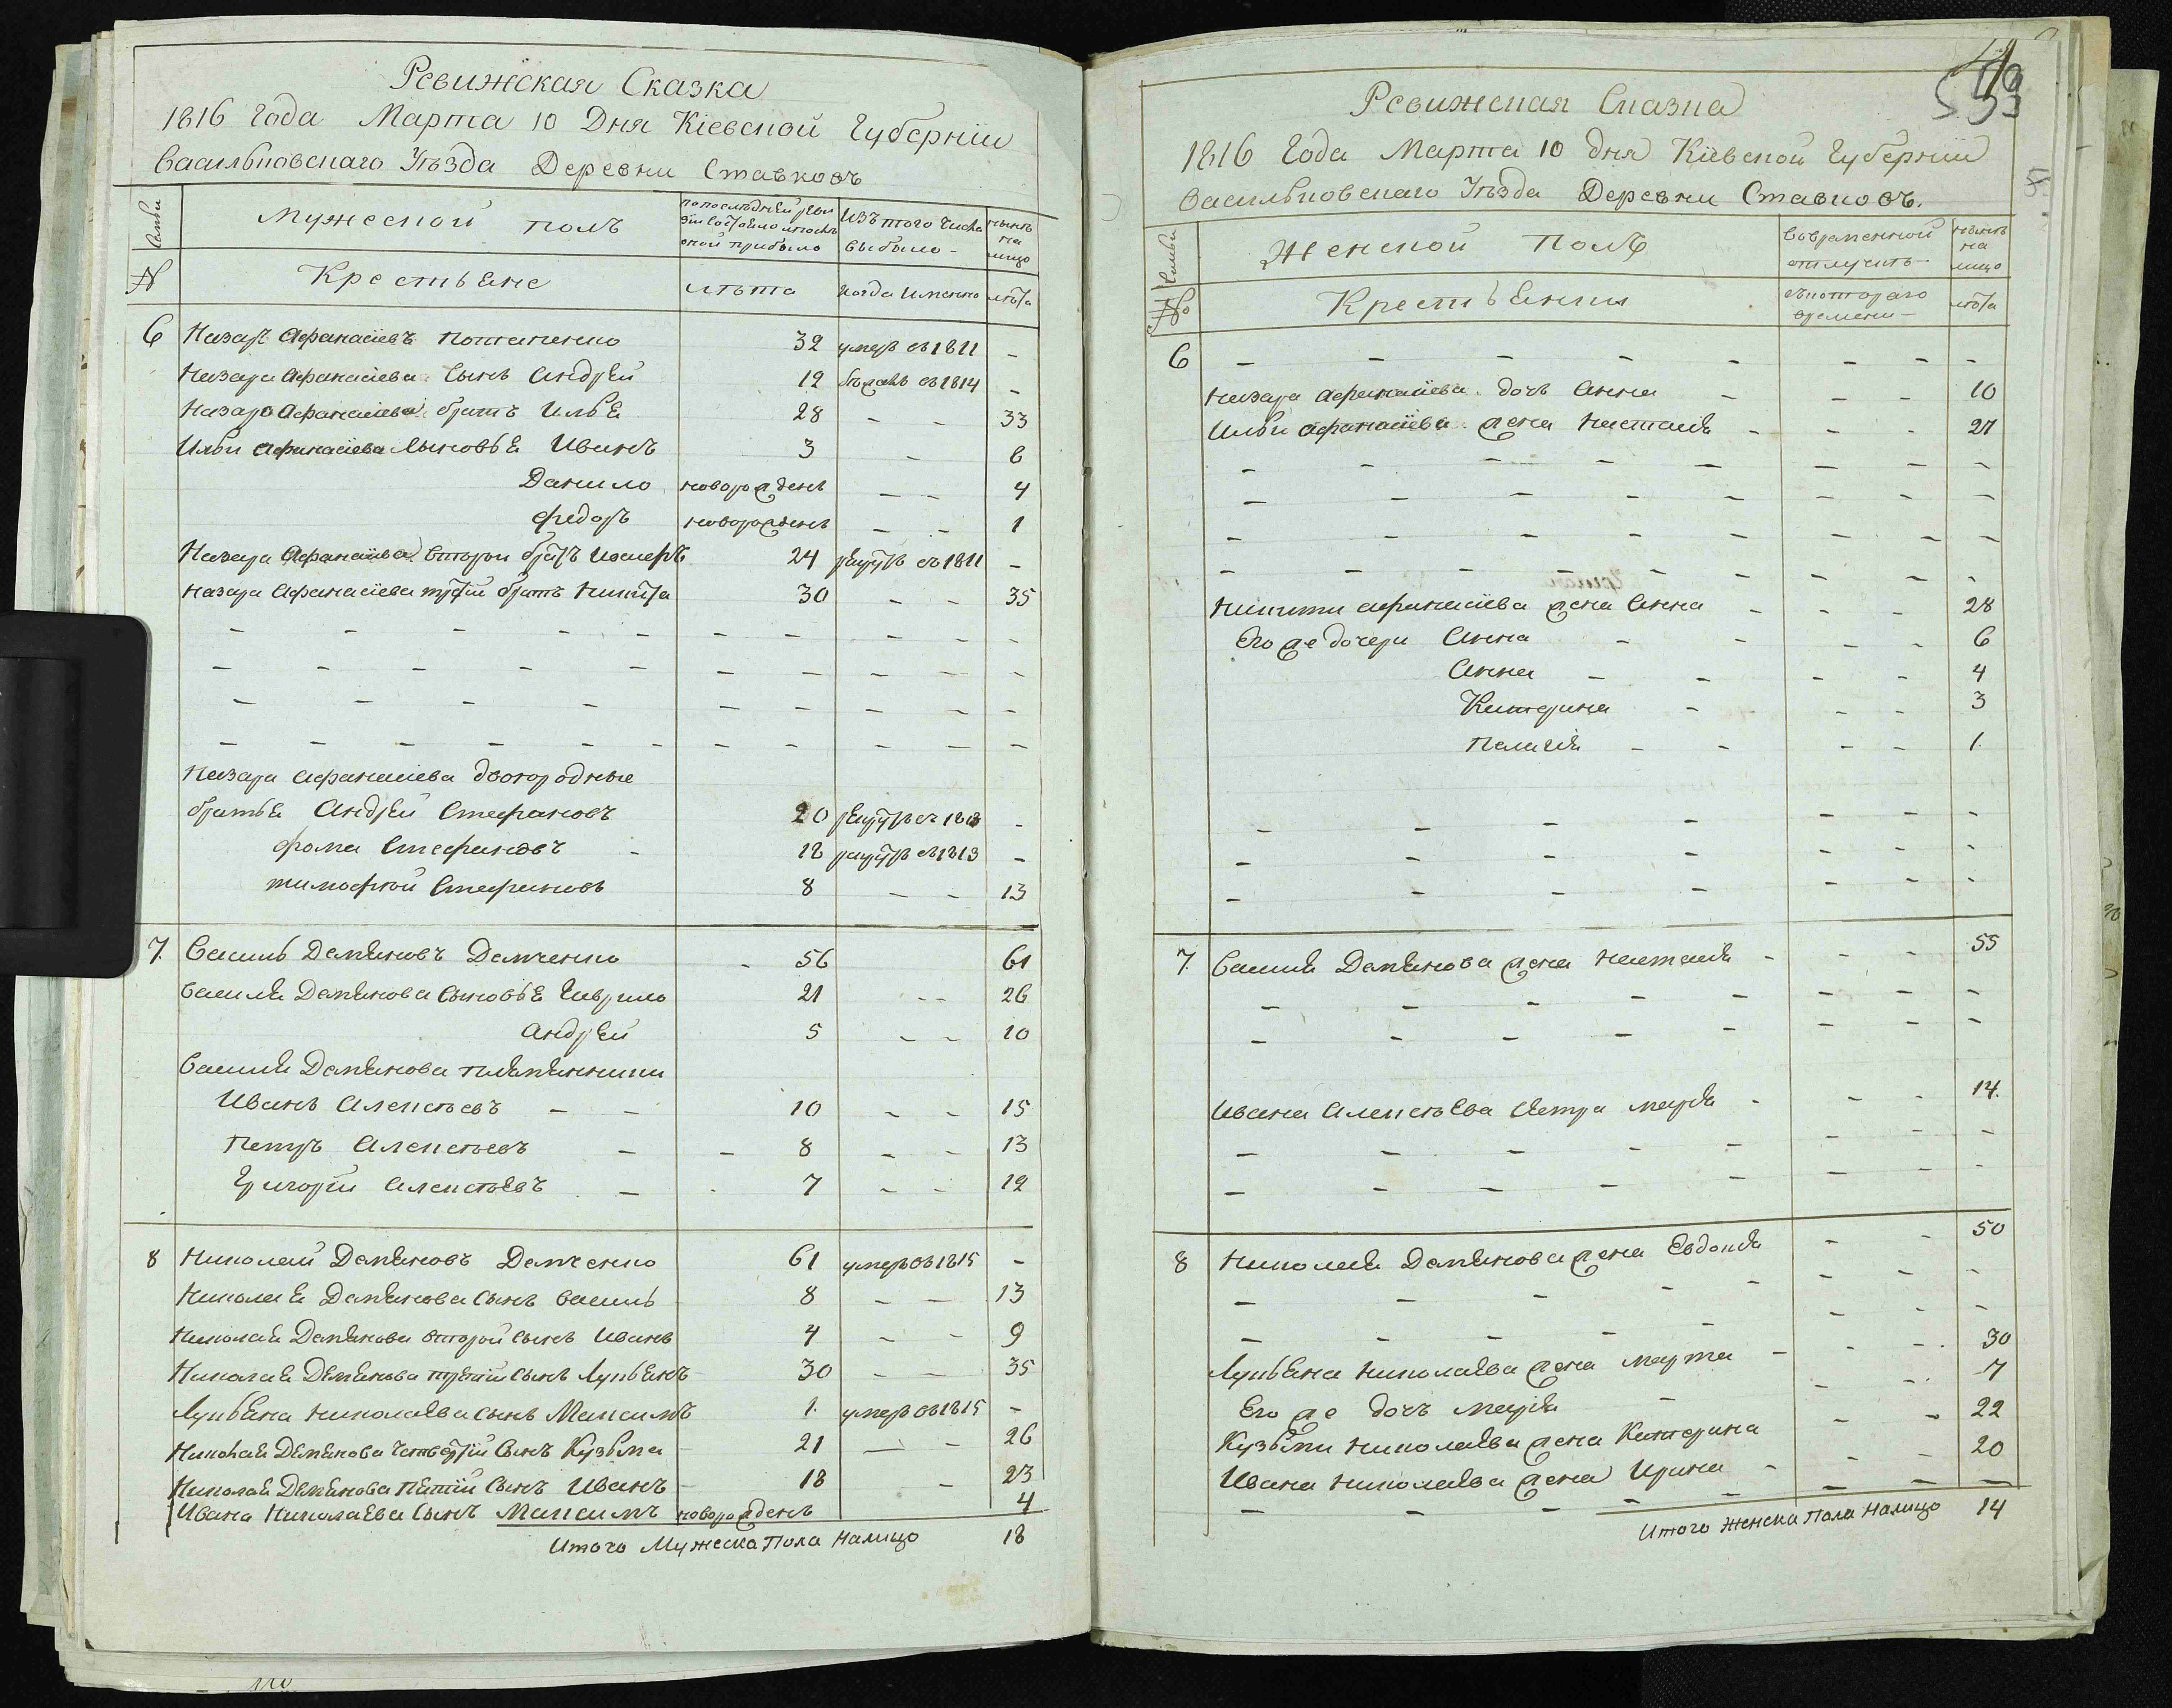 Ревижская Сказка
1816 Года Марта 10 Дня Кіевской Губерніи
Васильковскаго Уѣзда Деревни Ставковъ
Семьи
Мужеской полъ
по последней реви
зіи состояло и после
оной прибыло
Изъ того числа
выбыло
ныне
на
лицо
№
Крестьяне
лѣта
когда именно
лѣта
6 Назаръ Афанасіевъ Потапенко 32 умеръ въ 1811 -
Назара Афанасіева сынъ Андрей 12 въ 1814 -
Назара Афанасіева братъ Илья 28 - - 33
Ильи Афанасіева сыновья Иванъ 3 - 8
Данило новорожденъ - - 4
Федоръ новорожденъ - - 1
Назара Афанасіева второй братъ 24 рекрутъ въ 1811 -
Назара Афанасіева третій братъ Никита 30 - - 35
Назара Афанасіева двоюродные
братья Андрей Стефановъ 20 рекрутъ въ 1813 -
Фома Стефановъ - 18 рекрутъ въ 1813 -
Тимофѣй Стефановъ 8 - - 13
7. Василь Демяновъ Демченко - 56 61
Василя Демянова сыновья Гаврило 21 - - 26
Андрей 5 - - 10
Василя Демянова племянники
Иванъ Алексѣевъ - - 10 - - 15
Петръ Алексѣевъ - - 8 - - 13
Григорій Алексѣевъ - - 7 - - 12
8 Николай Демяновъ Демченко 61 умеръ въ 1815 -
Николая Демянова сынъ Василь 8 - - 13
Николая Демянова второй сынъ Иванъ 4 - - 9
Николая Демянова третій сынъ Лукьянъ 30 - - 35
Лукьяна Николаева сынъ Максимъ 1. умеръ въ 1815 -
Николая Демянова четвертій сынъ Кузьма 21 - - 26
Николая Демянова пятій сынъ Иванъ 18 - 23
Ивана Николаева сынъ Максимъ новорожденъ 4
Итого Мужеска Пола Налицо 18
Ревижская Сказка
1816 Года Марта 10 дня Кіевской Губерніи
Васильковскаго Уѣзда Деревни Ставковъ.
Семьи
Женской полъ
Вовременной
отлучкѣ
ныне
на
лицо
№
Крестьянки
съ котораго
времени
лѣта
6 - - - - - - - -
Назара Афанасіева дочь Анна - - - 10
Ильи Афанасіева жена Настасія - - - 27
Никити Афанасіева жена Анна - - - 28
Его же дочери Анна - - - - 6
Анна - - - - 4
Катерина - - - 3
Пелагія - - - - 1.
7. Василя Демянова жена Настасія - - - 55
Ивана Алексѣева сестра Марія - - - 14.
8 Николая Демянова жена Евдокія - - 50
Лукьяна Николаева жена Марта - - - 30
Его же дочь Марія - - - 7
Кузьми Николаева жена Катерина - - 22
Ивана Николаева жена Ирина - - - 20
Итого Женска Пола Налицо 14